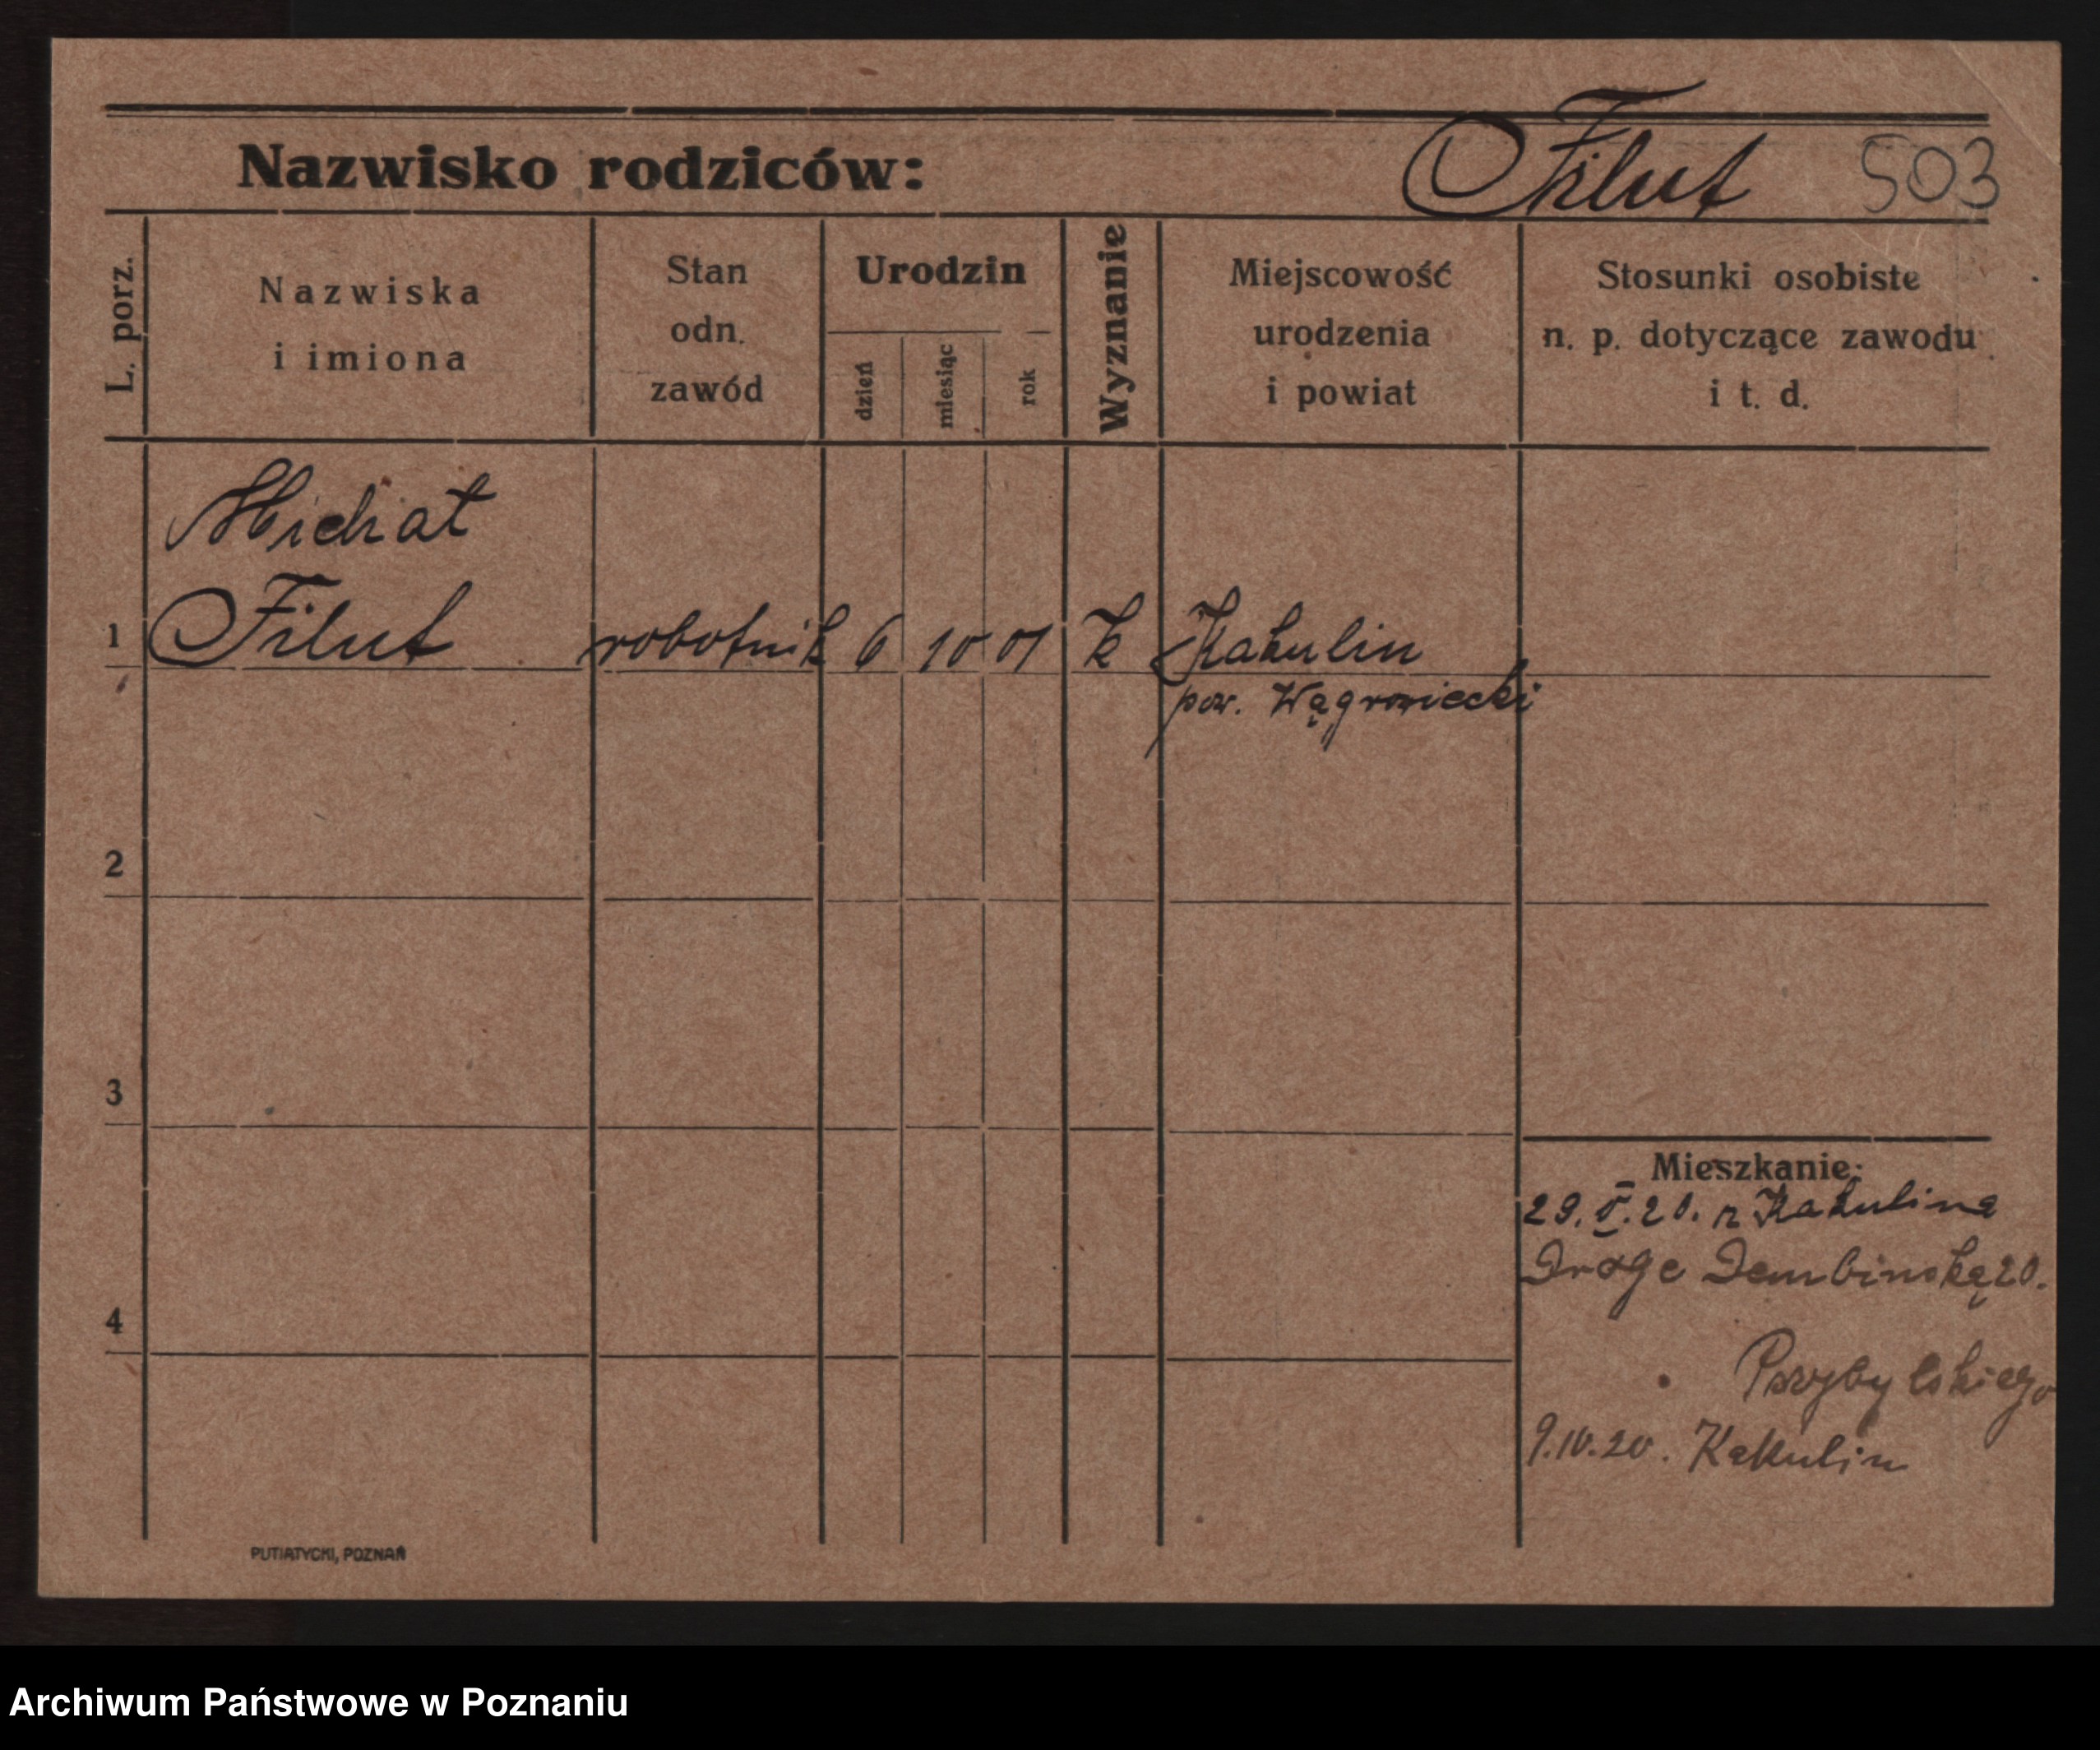 Nazwisko rodziców: Filut 503
L. porz.
Nazwiska
i imiona
Stan
odn.
zawód
Urodzin
dzień
miesiąc
rok
Wyznanie
Miejscowość
urodzenia
i powiat
Stosunki osobiste
n. p. dotyczące zawodu
i t. d.
Michał
1 Filut robotnik 6 10 01 k Kakulin
pow. Wągrowiecki
2
3
4
Mieszkanie:
29. V. 20. z Kakulina
Droge Dembinską 20.
Przybylskiego
9.10.20. Kakulin
PUTIATYCKI, POZNAŃ
Archiwum Państwowe w Poznaniu